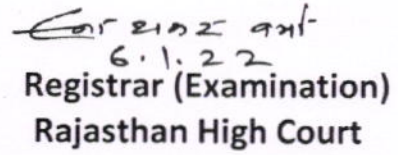 6.1.22
Registrar (Examination)
Rajasthan High Court